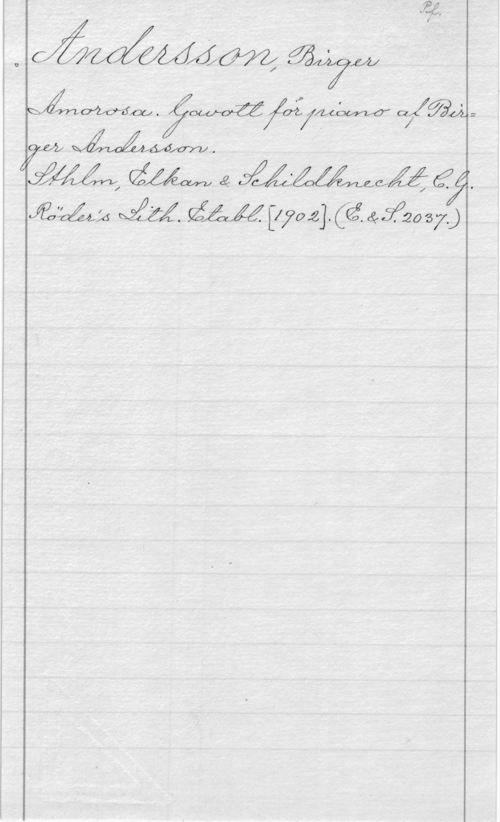 Pf.
Andersson, Birger
Amorosa. Gavott för piano af Bir=
ger Andersson.
Sthlm, Elkan & Schildknecht, C. G.
Röder's Lith. Etabl. [1902]. (E. & S. 2037.)